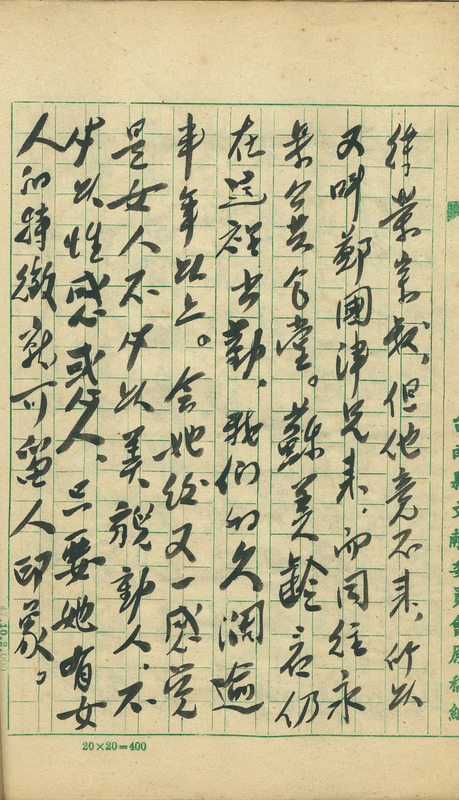 葉榮鐘，但他竟不來，所以
又叫鄭國津兄來，而同往永
樂公共食堂。蘇美齡君仍
在這裡出勤，我們的久濶逾
半年以上。会她给又一感觉
是女人不必以美貌動人，不
必以性感或人、只要她有女
人的特徵就可留人印象。
台南縣文献委員會原稿紙
20×20=400